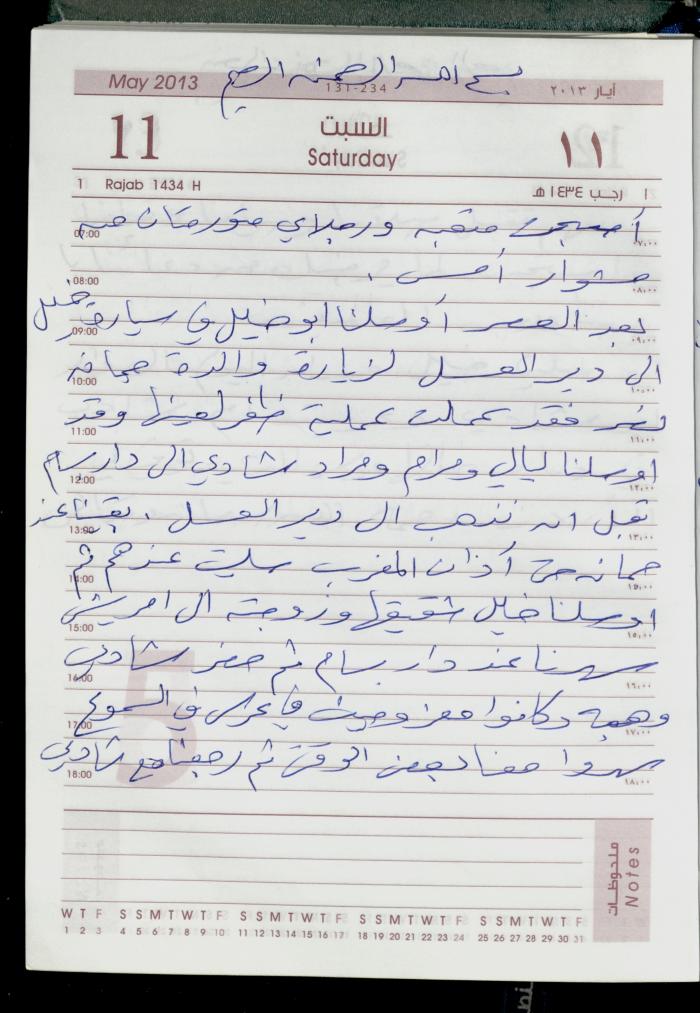 بسم الله الرحمن الرحيم
May 2013
131-234
أيار ٢٠١٣
11
السبت
Saturday
١١
1 Rajab 1434 H
١ رجب ١٤٣٤ هـ
أصبحت متعبه ورجلاي متورمتان من
07:00 ٠٧،٠٠
مشوار أمس .
08:00 ٠٨،٠٠
بعد العصر أوصلنا ابو خليل في سيارة خليل
09:00 ٠٩،٠٠
الى دير العسل لزيارة والدة
10:00 ١٠،٠٠
فقد عملت عملية لعينها وقد
11:00 ١١،٠٠
اوصلنا ليالي ومرام ومراد شادي الى دار سام
12:00 ١٢،٠٠
قبل ان نذهب الى دير العسل . بقينا عند
13:00 ١٣،٠٠
حتى أذان المغرب صليت عندهم ثم
14:00
اوصلنا خليل شقيقها وزوجته الى امريش
15:00 ١٥،٠٠
سهرنا عند دار بسام ثم حضر شادي
16:00 ١٦،٠٠
وهبه وكانوا في السموع
17:00 ١٧،٠٠
سهروا معنا بعض الوقت ثم رجعنا مع شادي
18:00 ١٨،٠٠
ملحوظات
Notes
W T F S S M T W T F S S M T W T F S S M T W T F S S M T W T F
1 2 3 4 5 6 7 8 9 10 11 12 13 14 15 16 17 18 19 20 21 22 23 24 25 26 27 28 29 30 31